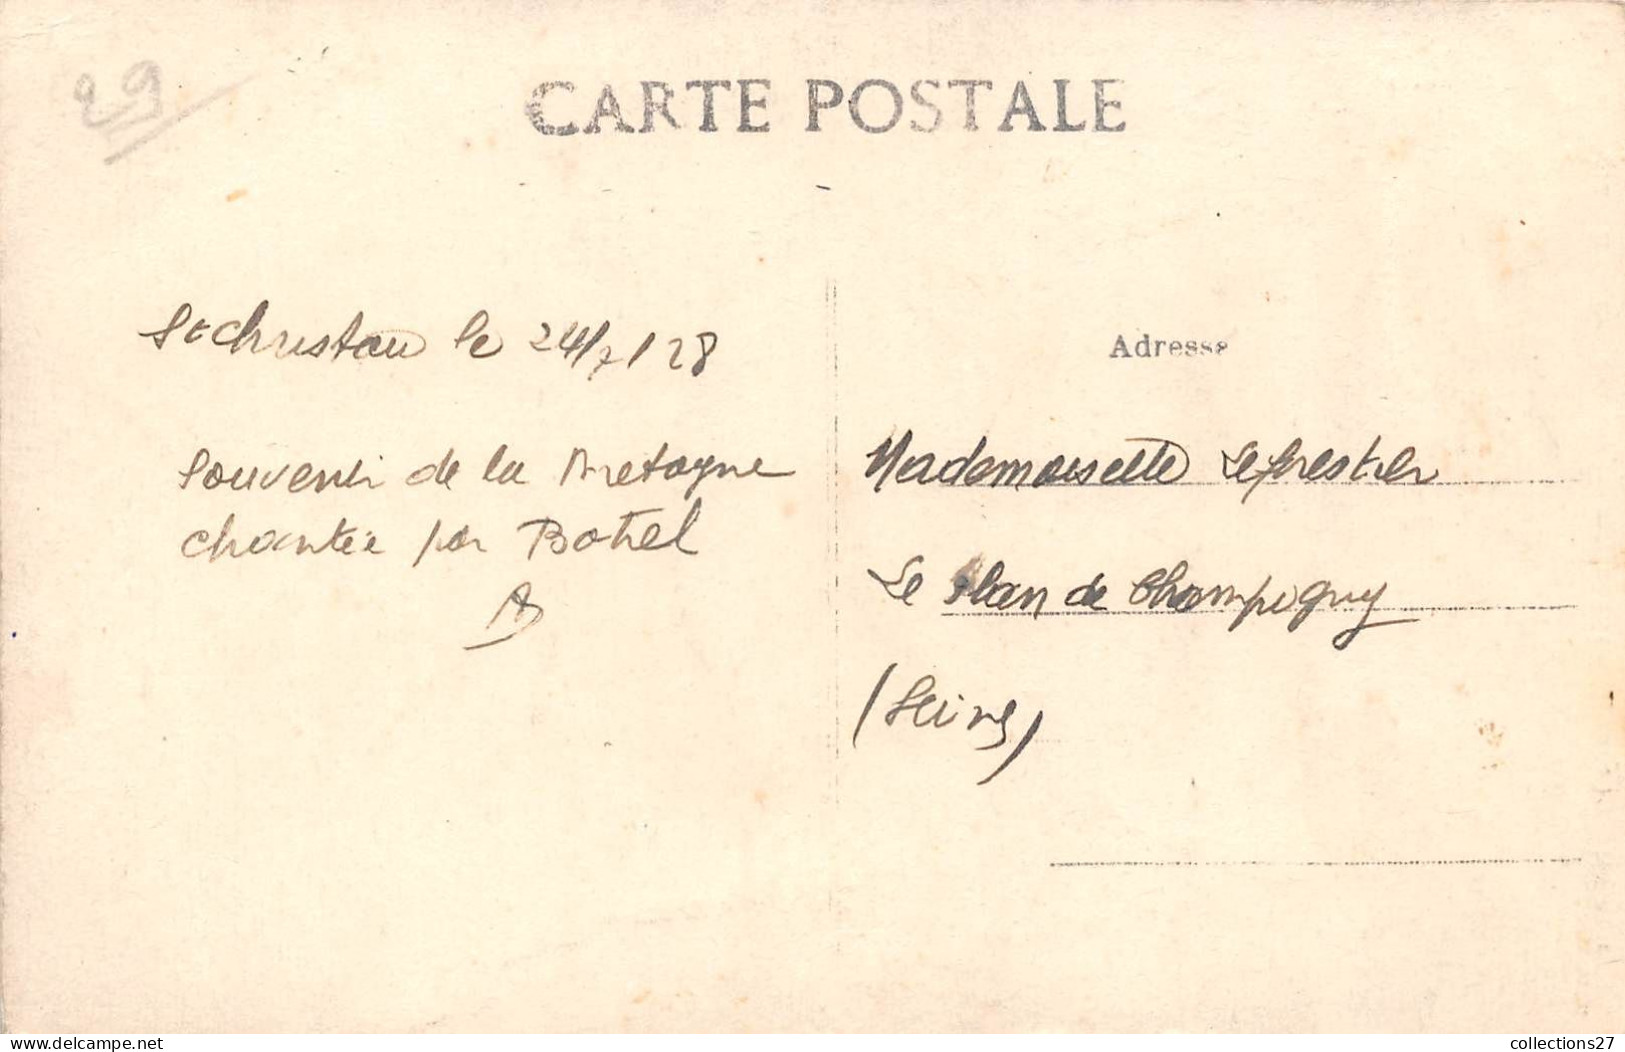 29
CARTE POSTALE
St Christau le 24/7/28
Souvenir de la Bretagne
chantée par Botrel
AB
Adresse
Mademoiselle Lefrestier
Le Plan de Champigny
(Seine)
www.delcampe.net
collections27